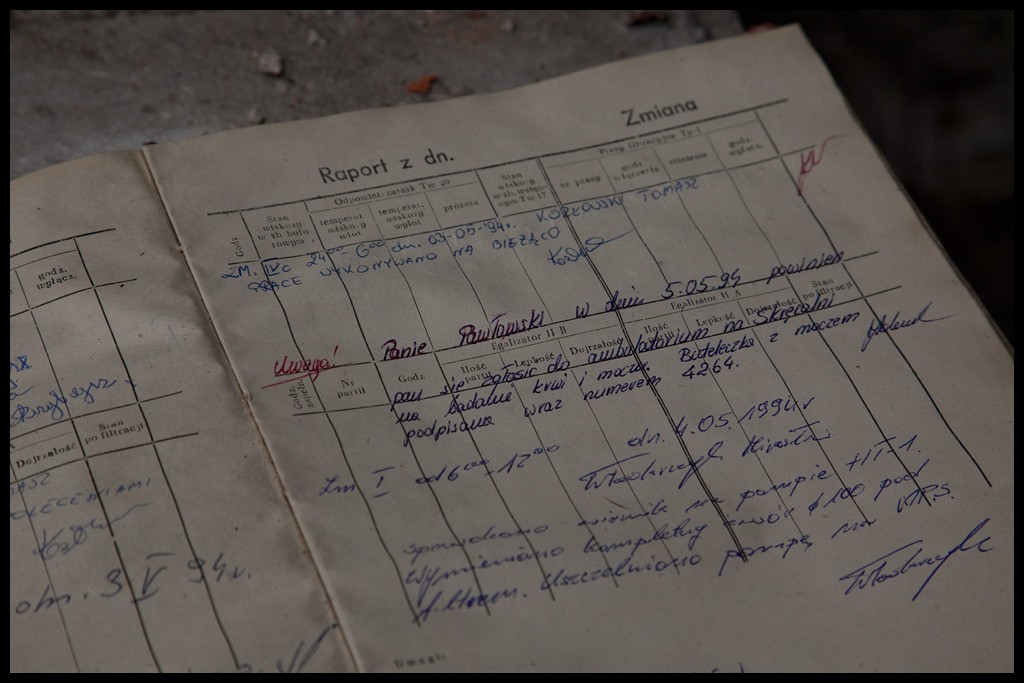 godz. wyłącz.
Dojrzałość
Stan po filtracji
3 V 94r.
Raport z dn.
Zmiana
Godz.
Stan wiskozy w zb. buforowym
Odpowietrzalnik Tw 20
temperat. wiskozy wlot
temperat. wiskozy wylot
próżnia
Stan wiskozy w zb. wstępnym Tw 17
Prasy filtracyjne Tp-1
nr prasy
godz. włączenia
ciśnienie
godz. wyłącz.
ZM. IVc 24⁰⁰ - 6⁰⁰ dn. 03-05-94r. KOZŁOWSKI TOMASZ
PRACE WYKONYWANO NA BIEŻĄCO
Uwaga! Panie Pawłowski w dniu 5.05.94 powinien
Egalizator II B
Egalizator II A
Stan po filtracji
Nr partii
Godz.
Ilość partii
Lepkość
Dojrzałość
Ilość
Lepkość
Dojrzałość
pan się zgłosić do ambulatorium na Skręcalni
na badanie krwi i moczu. Buteleczka z moczem
podpisana wraz numerem 4264.
dn. 4.05.1994r
Zm I od 6⁰⁰ - 12⁰⁰
na pompie HT-1.
Wymieniono kompletny zawór ϕ 100 pod
Uszczelniono pompę na
Uwagi: